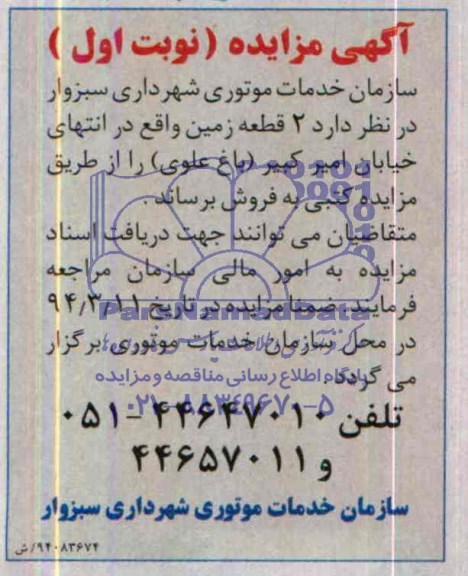 آگهی مزایده (نوبت اول)
سازمان خدمات موتوری شهرداری سبزوار
در نظر دارد ۲ قطعه زمین واقع در انتهای
خیابان امیر کبیر (باغ علوی) را از طریق
مزایده کتبی به فروش برساند.
متقاضیان می توانند جهت دریافت اسناد
مزایده به امور مالی سازمان مراجعه
فرمایند. ضمنا مزایده در تاریخ ۹۴/۳/۱۱
ParsNamadData
در محل سازمان خدمات موتوری برگزار
می گردد.
پایگاه اطلاع رسانی مناقصه و مزایده
تلفن ۴۴۶۴۷۰۱۰ - ۰۵۱
۰۲۱-۸۸۳۴۹۶۷۰-۵
و ۴۴۶۵۷۰۱۱
سازمان خدمات موتوری شهرداری سبزوار
۹۴۰۸۳۶۷۴/ش